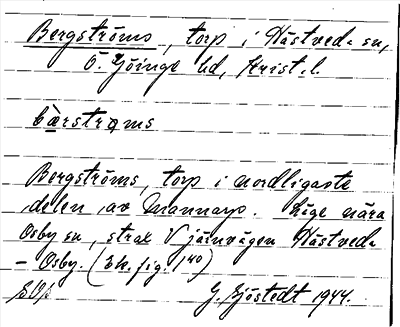 Bergströms, torp i Hästveda sn,
Ö. Göinge hd, Krist. l.
bàrstrǫms
Bergströms, torp i nordligaste
delen av Mannarp. Läge nära
Osby sn, strax V järnvägen Hästveda
- Osby. (Ek. fig. 1⁴⁰)
G. Sjöstedt 1944.